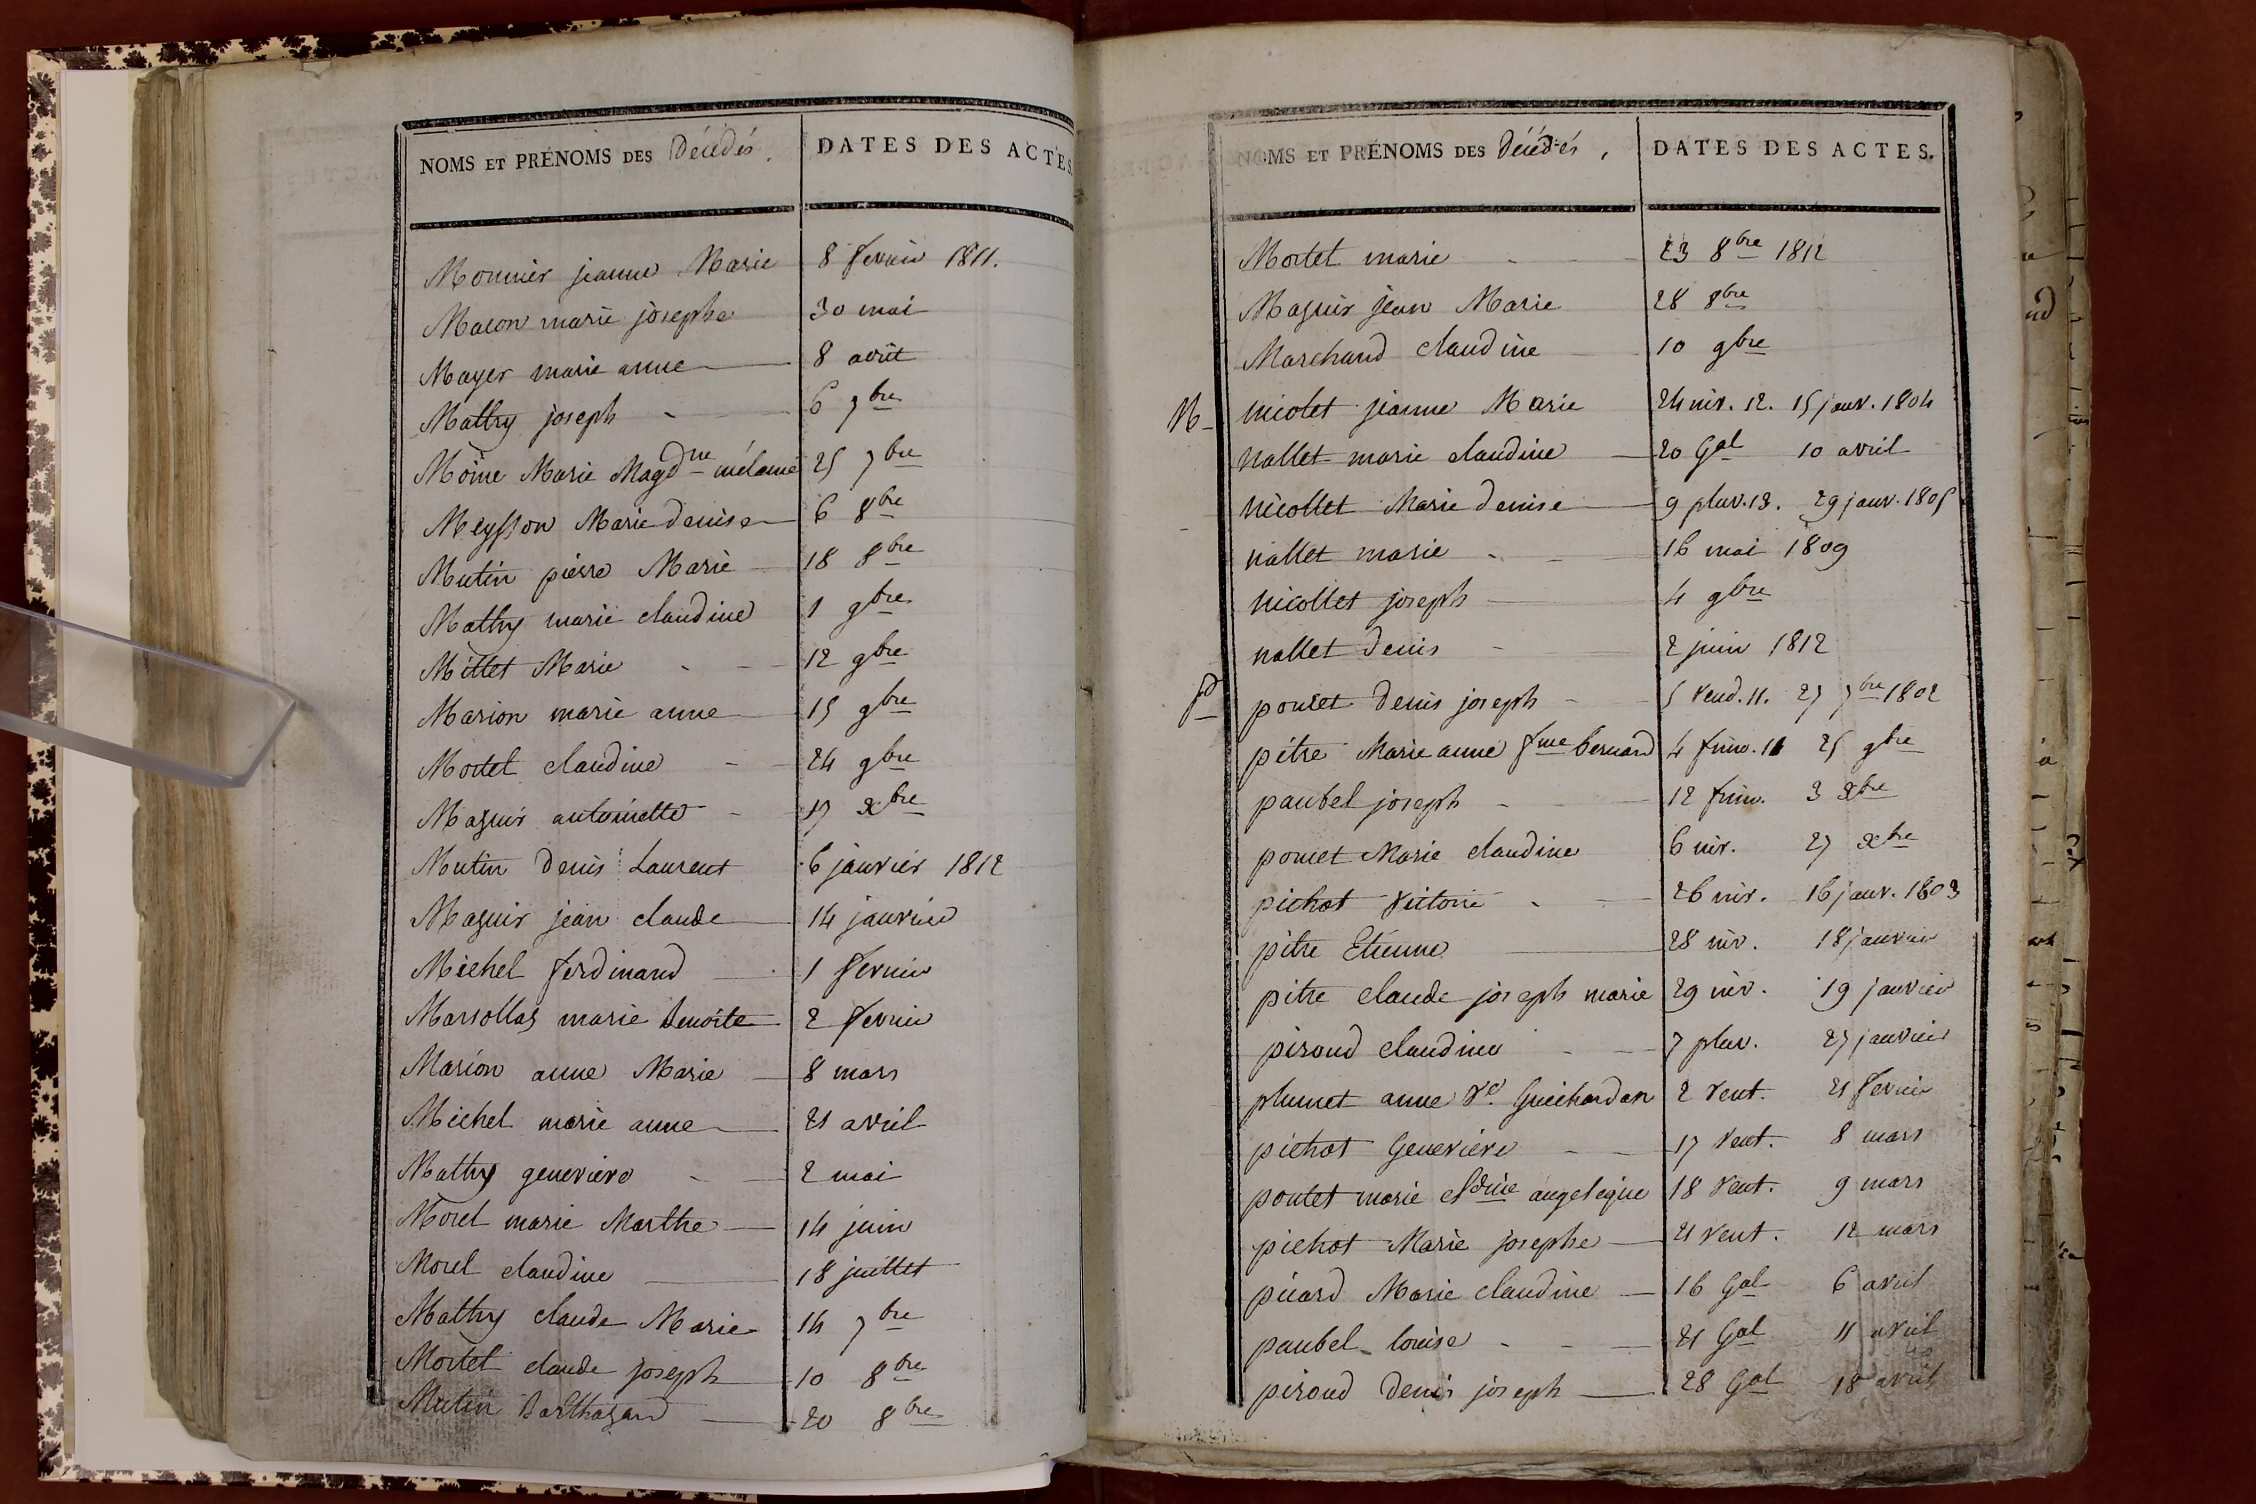 NOMS ET PRÉNOMS DES Décédés. DATES DES ACTES.
Monnier jeanne Marie 8 fevrier 1811.
Macon marie josephe 30 mai
Mayer marie anne 8 août
Mathy joseph - 6 7bre
Moine Marie Magdne mélanie 25 7bre
Meysson Marie denise 6 8bre
Mutin pierre Marie 18 8bre
Mathy marie claudine 1 9bre
Millet Marie - - 12 9bre
Marion marie anne 15 9bre
Mortel claudine - - 24 9bre
Maguir antoinette - 17 Xbre
Mutin Denis Laurent 6 janvier 1812
Maguir jean claude 14 janvier
Michel ferdinand 1 fevrier
Marsollas marie benoite 2 fevrier
Marion anne Marie 8 mars
Michel marie anne 21 avril
Mathy genevieve - 2 mai
Morel marie Marthe 14 juin
Morel claudine 18 juillet
Mathy claude Marie 14 7bre
Mortel claude joseph 10 8bre
Mutin Balthazard 20 8bre
NOMS ET PRÉNOMS DES Décédés, DATES DES ACTES.
Mortel marie - - 23 8bre 1812
Maguir jean Marie 28 8bre
Marchand claudine 10 9bre
N- nicolet jeanne Marie 24 niv. 12. 15 janv. 1804
nallet marie claudine 20 Gal 10 avril
nicollet Marie denise 9 pluv. 13. 29 janv. 1805
nallet marie - - 16 mai 1809
nicollet joseph 4 9bre
nallet denis - 2 juin 1812
P poncet denis joseph - 5 vend. 11. 27 7bre 1802
pétre Marie anne fme bernard 4 frim. 11 25 9bre
paubel joseph - 12 frim. 3 Xbre
poncet Marie claudine 6 niv. 27 Xbre
pichot victoire - - 26 niv. 16 janv. 1803
pitre Etienne 28 niv. 18 janvier
pitre claude joseph marie 29 niv. 19 janvier
piroud claudine - - 7 pluv. 27 janvier
plumet anne Ve. Guichardan 2 vent. 21 fevrier
pichot Genevieve - - 17 vent. 8 mars
pontet marie cldine angelique 18 vent. 9 mars
pichot Marie josephe 21 vent. 12 mars
picard Marie claudine 16 Gal 6 avril
paubel louise - - - 21 Gal 11 avril
piroud denis joseph 28 Gal 18 avril